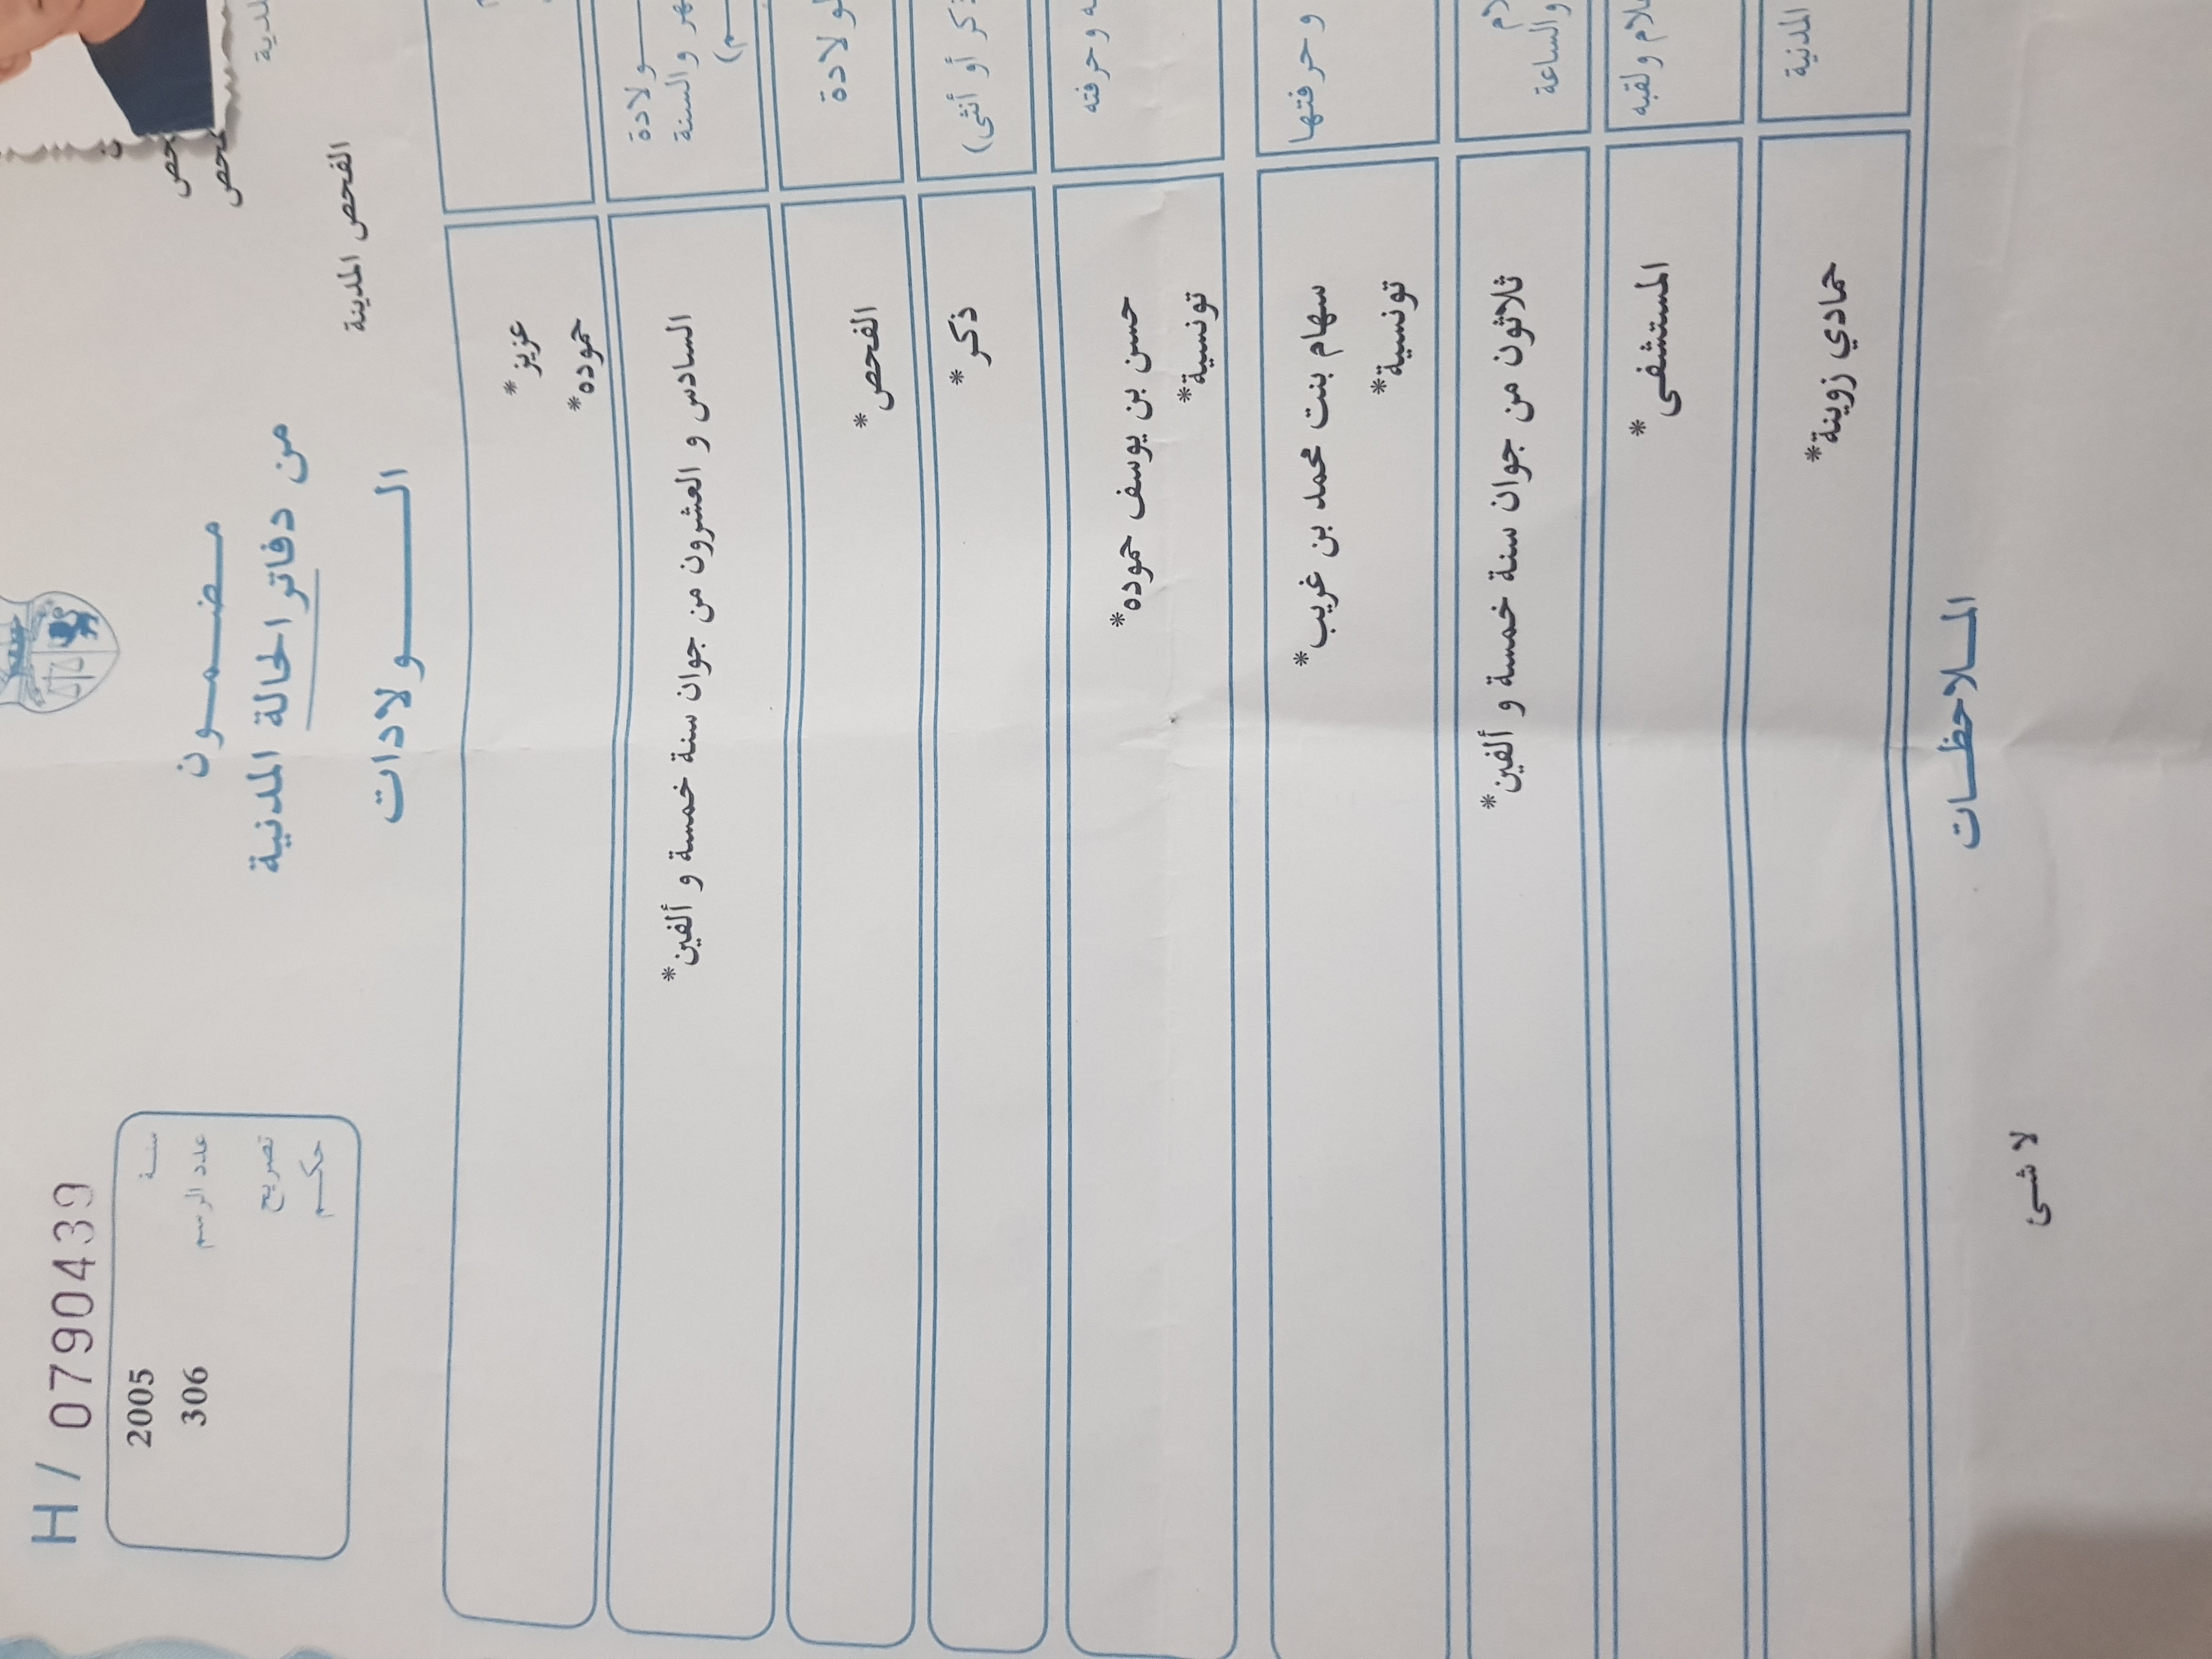 H/ 0790439
سنة 2005
عدد الرسم 306
تصريح
حكم
مضمون
من دفاتر الحالة المدنية
الولادات
الفحص المدينة
عزيز*
حموده*
ولادة
والسنة
السادس و العشرون من جوان سنة خمسة و ألفين*
الفحص*
أو أنثى)
ذكر*
وحرفته
حسن بن يوسف حموده*
تونسية*
وحرفتها
سهام بنت محمد بن غريب*
تونسية*
والساعة
ثلاثون من جوان سنة خمسة و ألفين*
ولقبه
المستشفى*
المدنية
حمادي زوينة*
الملاحظات
لا شئ